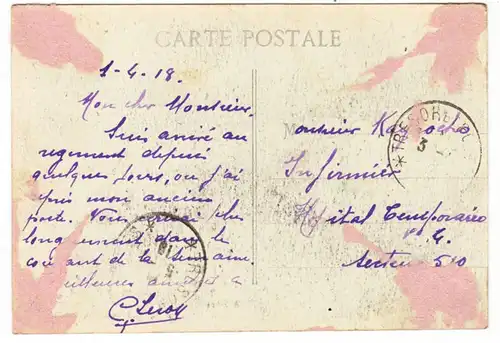 CARTE POSTALE
1-4.18.
Mon cher Monsieur.
Suis arrivé au
regiment depuis
quelques jours, où j'ai
pris mon ancien
poste. Vous plus
longuement dans le
courant de la semaine
Monsieur
Infirmier
Hôpital Temporaire
Secteur 510
TRESOR
3